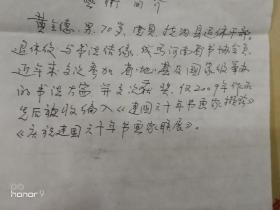 艺术简介
黄立德，男，70岁，党员，
退休后与书法结缘，成为河南省书协会员，
近年来多次参加省、地、县及国家级举办
的书法大赛并多次获奖，仅2009年作品
先后被收编入《建国六十年书画家
《庆祝建国六十年书画家联展》。